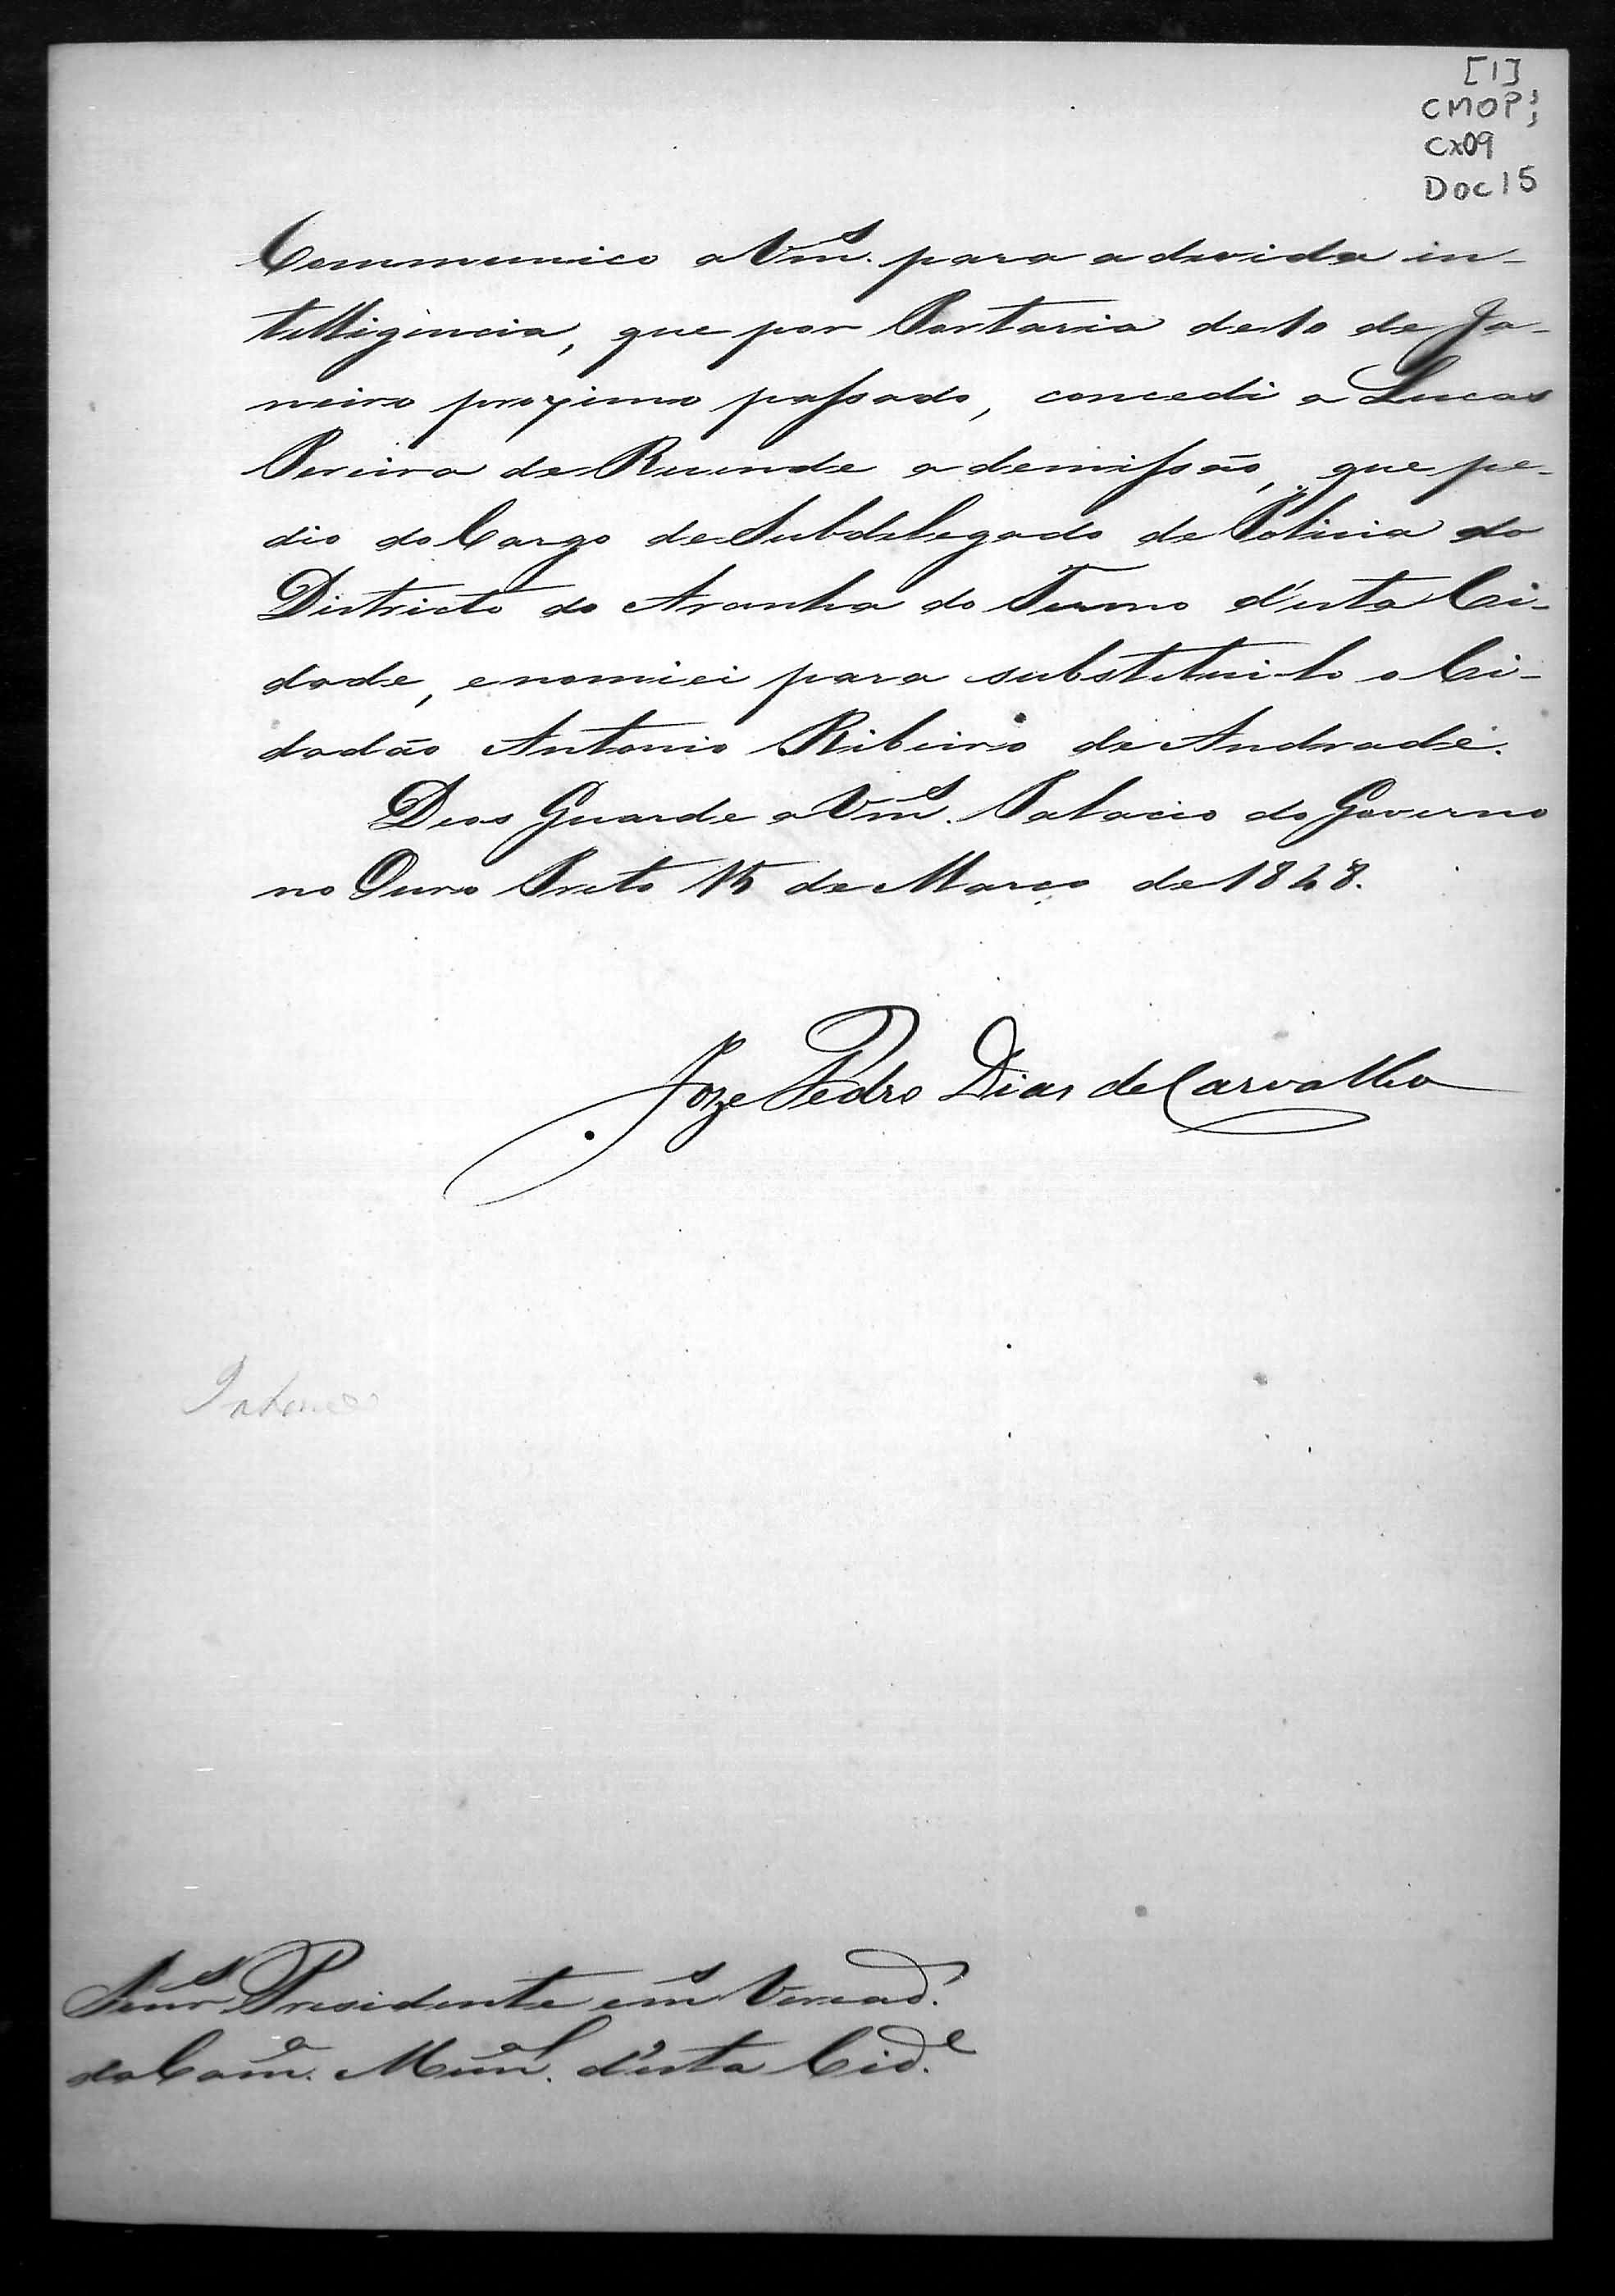 [1]
CMOP;
Cx09
Doc 15
Communico a Vm.s para a devida in-
telligencia, que por Portaria de 10 de Ja-
neiro proximo passado, concedi a Lucas
Pereira de Rezende a demissão, que pe-
dio do Cargo de Subdelegado de Policia do
Districto do Aranha do Termo d'esta Ci-
dade, e nomiei para substitui-lo o Ci-
dadão Antonio Ribeiro de Andrade.
Deos Guarde a Vm.s Palacio do Governo
no Ouro Preto 15 de Março de 1848.
Joze Pedro Dias de Carvalho
Senr.s Presidente e m.s Veread.
da Cam.a Mun.al d'esta Cid.e